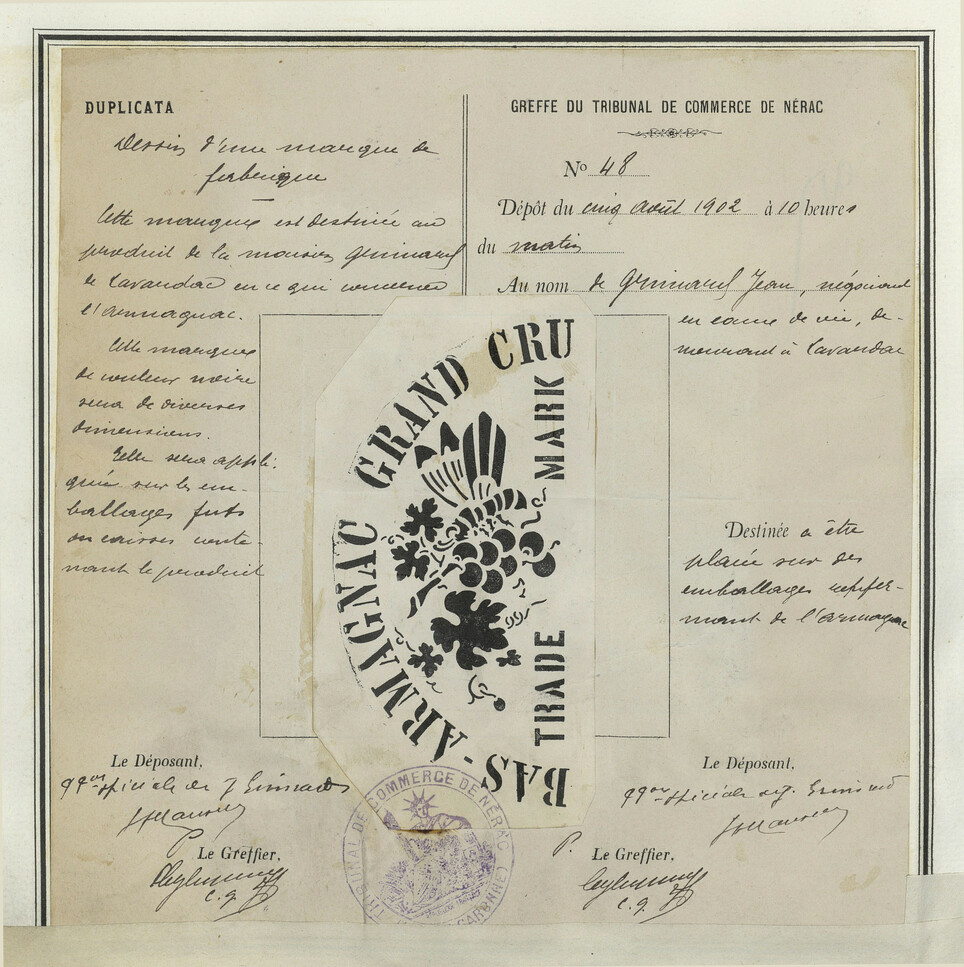 DUPLICATA
Dessin d'une marque de
fabrique
Cette marque est destinée au
produit de la maison Grimard
de Lavardac en ce qui concerne
l'armagnac.
Cette marque
de couleur noire
sera de diverses
dimensions.
Elle sera appli-
quée sur les em-
ballages futs
ou caisses conte-
nant le produit
Le Déposant,
Le Greffier,
c. g.
GREFFE DU TRIBUNAL DE COMMERCE DE NÉRAC
No 48
Dépôt du cinq Août 1902 à 10 heures
du matin
Au nom de Grimard Jean, négociant
en eaux de vie, de-
meurant à Lavardac
BAS-ARMAGNAC GRAND CRU
TRADE MARK
Destinée à être
placée sur des
emballages renfer-
mant de l'armagnac
Le Déposant,
P. Le Greffier,
c. g.
TRIBUNAL DE COMMERCE DE NÉRAC
GARONNE)